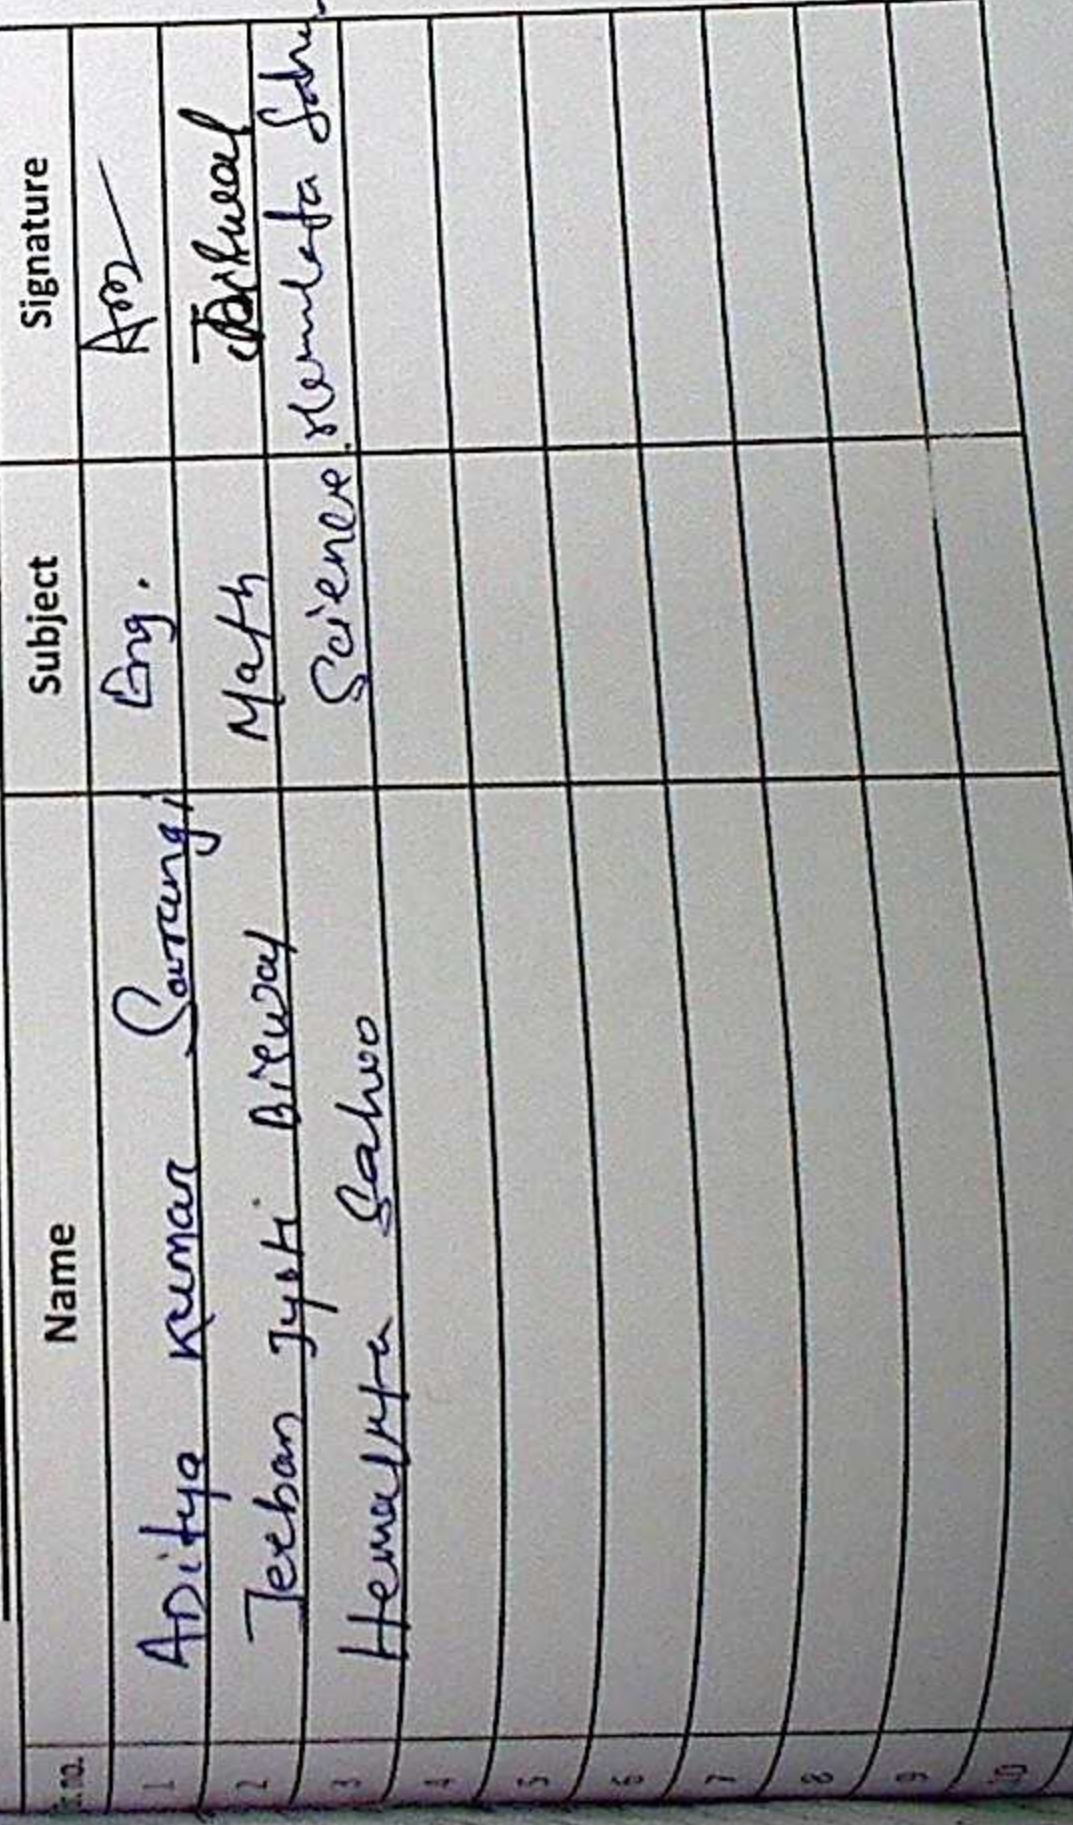 Sr. no. Name Subject Signature
1 ADitya Kumar Sarangi Eng.
2 Jeeban Jyoti Biswal Math
3 Hemalata Sahoo Science Hemlata Sahu
4
5
6
7
8
9
10